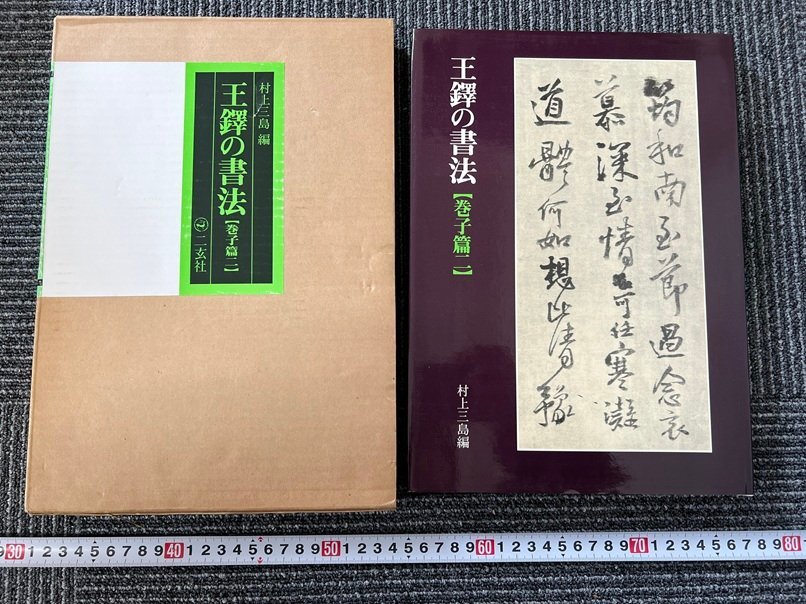 村上三島編
王鐸の書法【巻子篇二】
二玄社
王鐸の書法
【巻子篇二】
村上三島編
筠和南至節過念哀
慕深至情不可任寒凝
道體何如想比清豫
30 1 2 3 4 5 6 7 8 9 40 1 2 3 4 5 6 7 8 9 50 1 2 3 4 5 6 7 8 9 60 1 2 3 4 5 6 7 8 9 70 1 2 3 4 5 6 7 8 9 80